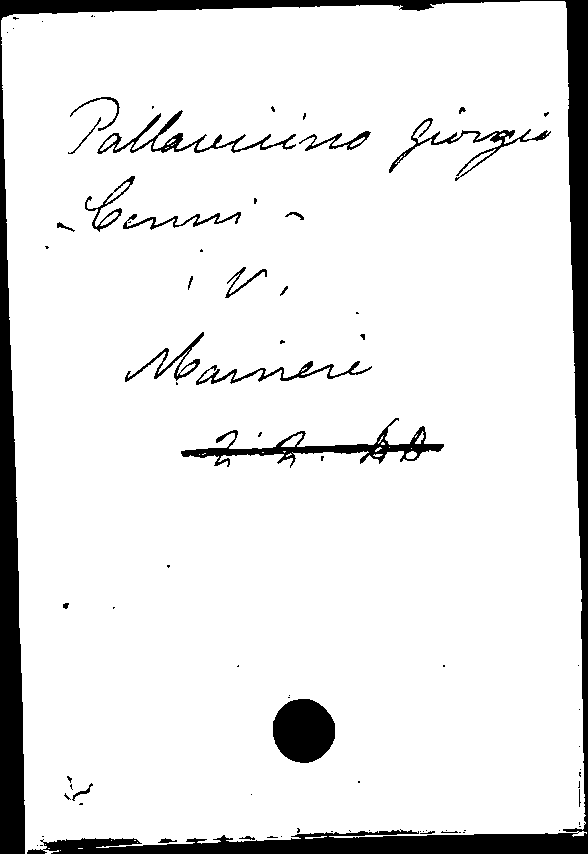 Pallavicino Giorgio
- Cenni -
V.
Maineri